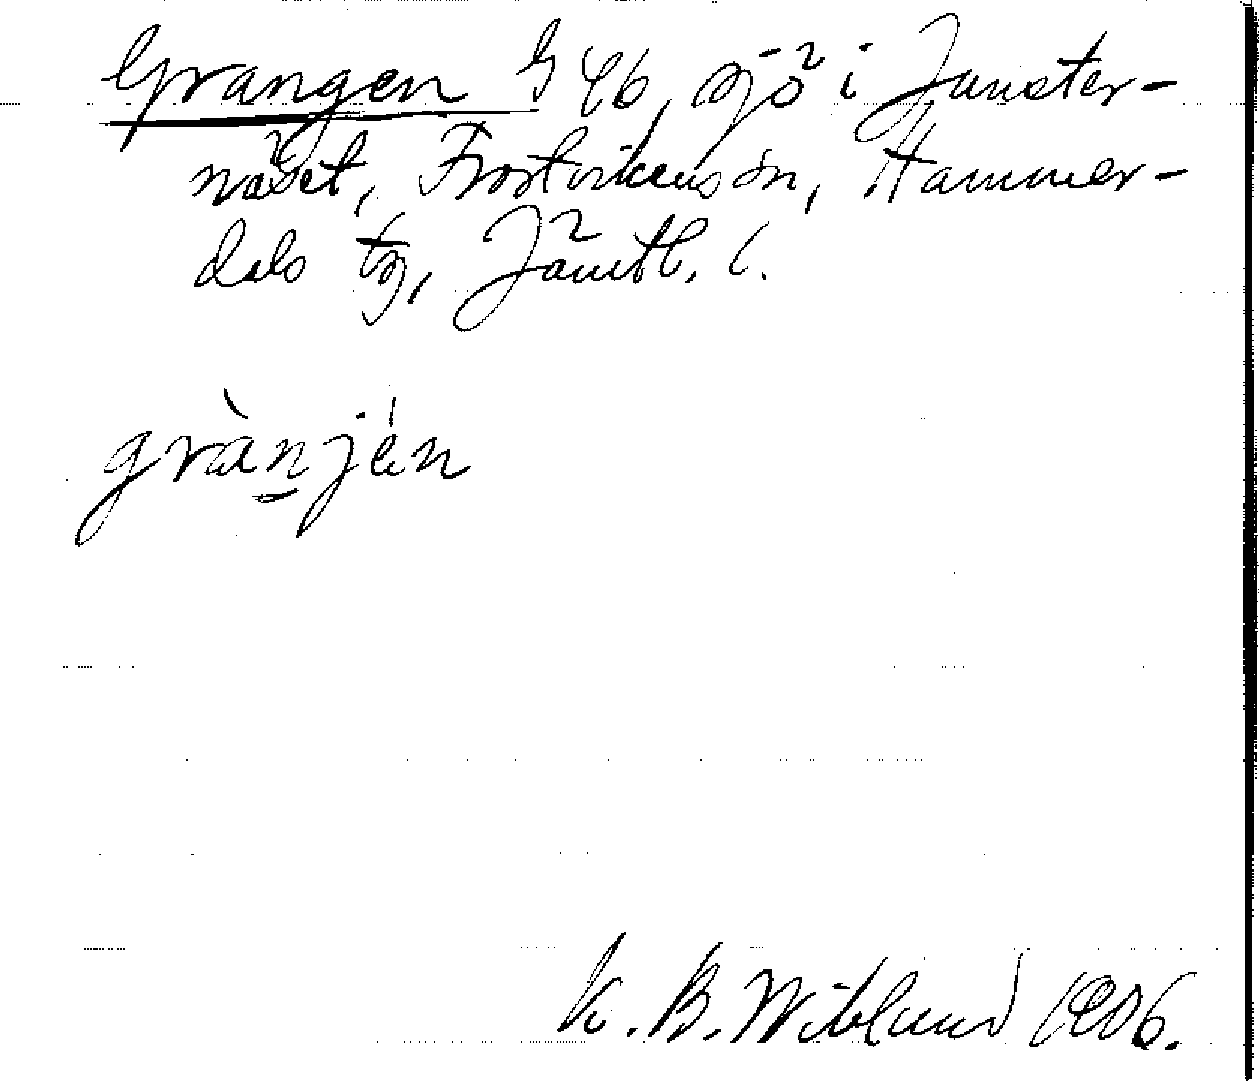 Grangen G 46, sjö i Junster-
näset, Frostvikens sn, Hammer-
dals tg, Jämtl. l.
grànjén
K. B. Wiklund 1906.